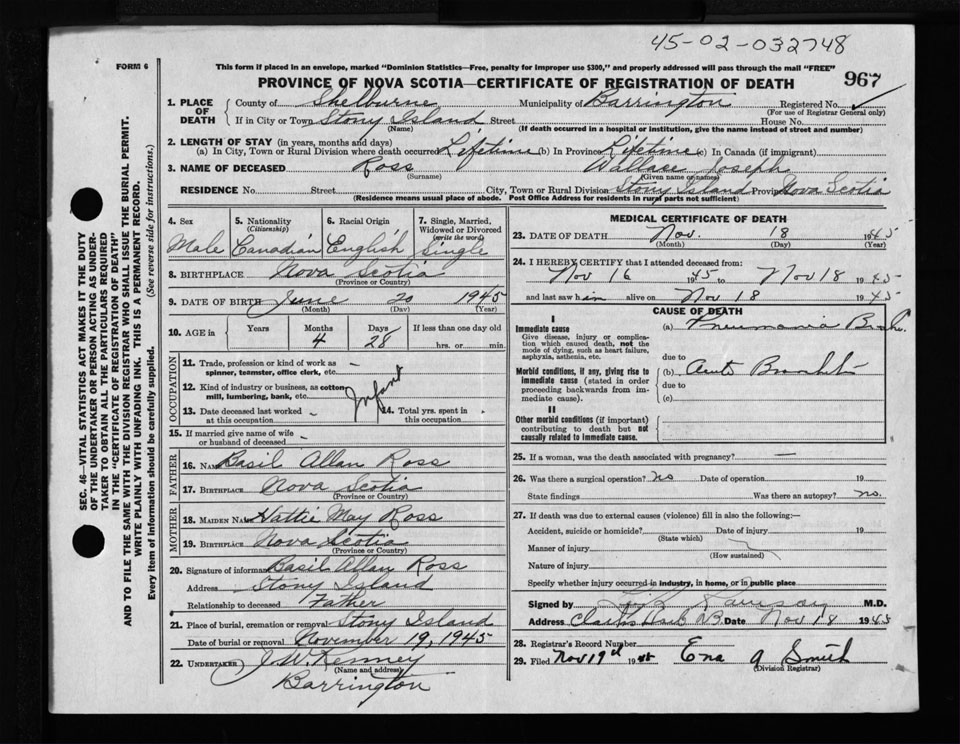 45-02-032748
FORM 6
This form if placed in an envelope, marked "Dominion Statistics—Free, penalty for improper use $300," and properly addressed will pass through the mail "FREE"
PROVINCE OF NOVA SCOTIA—CERTIFICATE OF REGISTRATION OF DEATH
967
1. PLACE OF DEATH
County of Shelburne Municipality of Barrington Registered No.
(For use of Registrar General only)
If in City or Town Stony Island Street House No.
(Name) (If death occurred in a hospital or institution, give the name instead of street and number)
2. LENGTH OF STAY (in years, months and days)
(a) In City, Town or Rural Division where death occurred Lifetime (b) In Province Lifetime (c) In Canada (if immigrant)
3. NAME OF DECEASED Ross Wallace Joseph
(Surname) (Given name or names)
RESIDENCE No. Street City, Town or Rural Division Stony Island Province Nova Scotia
(Residence means usual place of abode. Post Office Address for residents in rural parts not sufficient)
4. Sex
Male
5. Nationality
(Citizenship)
Canadian
6. Racial Origin
English
7. Single, Married, Widowed or Divorced
(write the word)
Single
8. BIRTHPLACE Nova Scotia
(Province or Country)
9. DATE OF BIRTH June 20 1945
(Month) (Day) (Year)
10. AGE in
Years Months Days If less than one day old
4 28 hrs. or min.
OCCUPATION
11. Trade, profession or kind of work as
spinner, teamster, office clerk, etc.
12. Kind of industry or business, as cotton
mill, lumbering, bank, etc.
Infant
13. Date deceased last worked at this occupation
14. Total yrs. spent in this occupation
15. If married give name of wife
or husband of deceased
FATHER
16. NAME Basil Allan Ross
17. BIRTHPLACE Nova Scotia
(Province or Country)
MOTHER
18. MAIDEN NAME Hattie May Ross
19. BIRTHPLACE Nova Scotia
(Province or Country)
20. Signature of informant Basil Allan Ross
Address Stony Island
Relationship to deceased Father
21. Place of burial, cremation or removal Stony Island
Date of burial or removal November 19, 1945
22. UNDERTAKER J W Kenney
(Name and address)
Barrington
MEDICAL CERTIFICATE OF DEATH
23. DATE OF DEATH Nov. 18 1945
(Month) (Day) (Year)
24. I HEREBY CERTIFY that I attended deceased from:
Nov 16 1945 Nov 18 1945
and last saw him alive on Nov 18 1945
CAUSE OF DEATH
I
Immediate cause
Give disease, injury or complication which caused death, not the mode of dying, such as heart failure, asphyxia, asthenia, etc.
(a)
due to
Morbid conditions, if any, giving rise to immediate cause (stated in order proceeding backwards from immediate cause).
(b)
due to
(c)
II
Other morbid conditions (if important) contributing to death but not causally related to immediate cause.
25. If a woman, was the death associated with pregnancy? —
26. Was there a surgical operation? No Date of operation 19
State findings Was there an autopsy? no.
27. If death was due to external causes (violence) fill in also the following:—
Accident, suicide or homicide? Date of injury 19
(State which)
Manner of injury
(How sustained)
Nature of injury
Specify whether injury occurred in industry, in home, or in public place
Signed by M.D.
Address Date Nov 18 1945
28. Registrar's Record Number
29. Filed Nov 19th 1945 Ena A Smith
(Division Registrar)
SEC. 46—VITAL STATISTICS ACT MAKES IT THE DUTY
OF THE UNDERTAKER OR PERSON ACTING AS UNDERTAKER
TO OBTAIN ALL THE PARTICULARS REQUIRED
IN THE "CERTIFICATE OF REGISTRATION OF DEATH"
AND TO FILE THE SAME WITH THE DIVISION REGISTRAR WHO SHALL ISSUE THE BURIAL PERMIT.
WRITE PLAINLY WITH UNFADING INK. THIS IS A PERMANENT RECORD.
Every item of information should be carefully supplied. (See reverse side for instructions.)